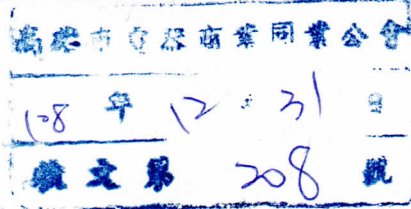 高雄市電器商業同業公會
108 年 12 月 31 日
收文第 208 號